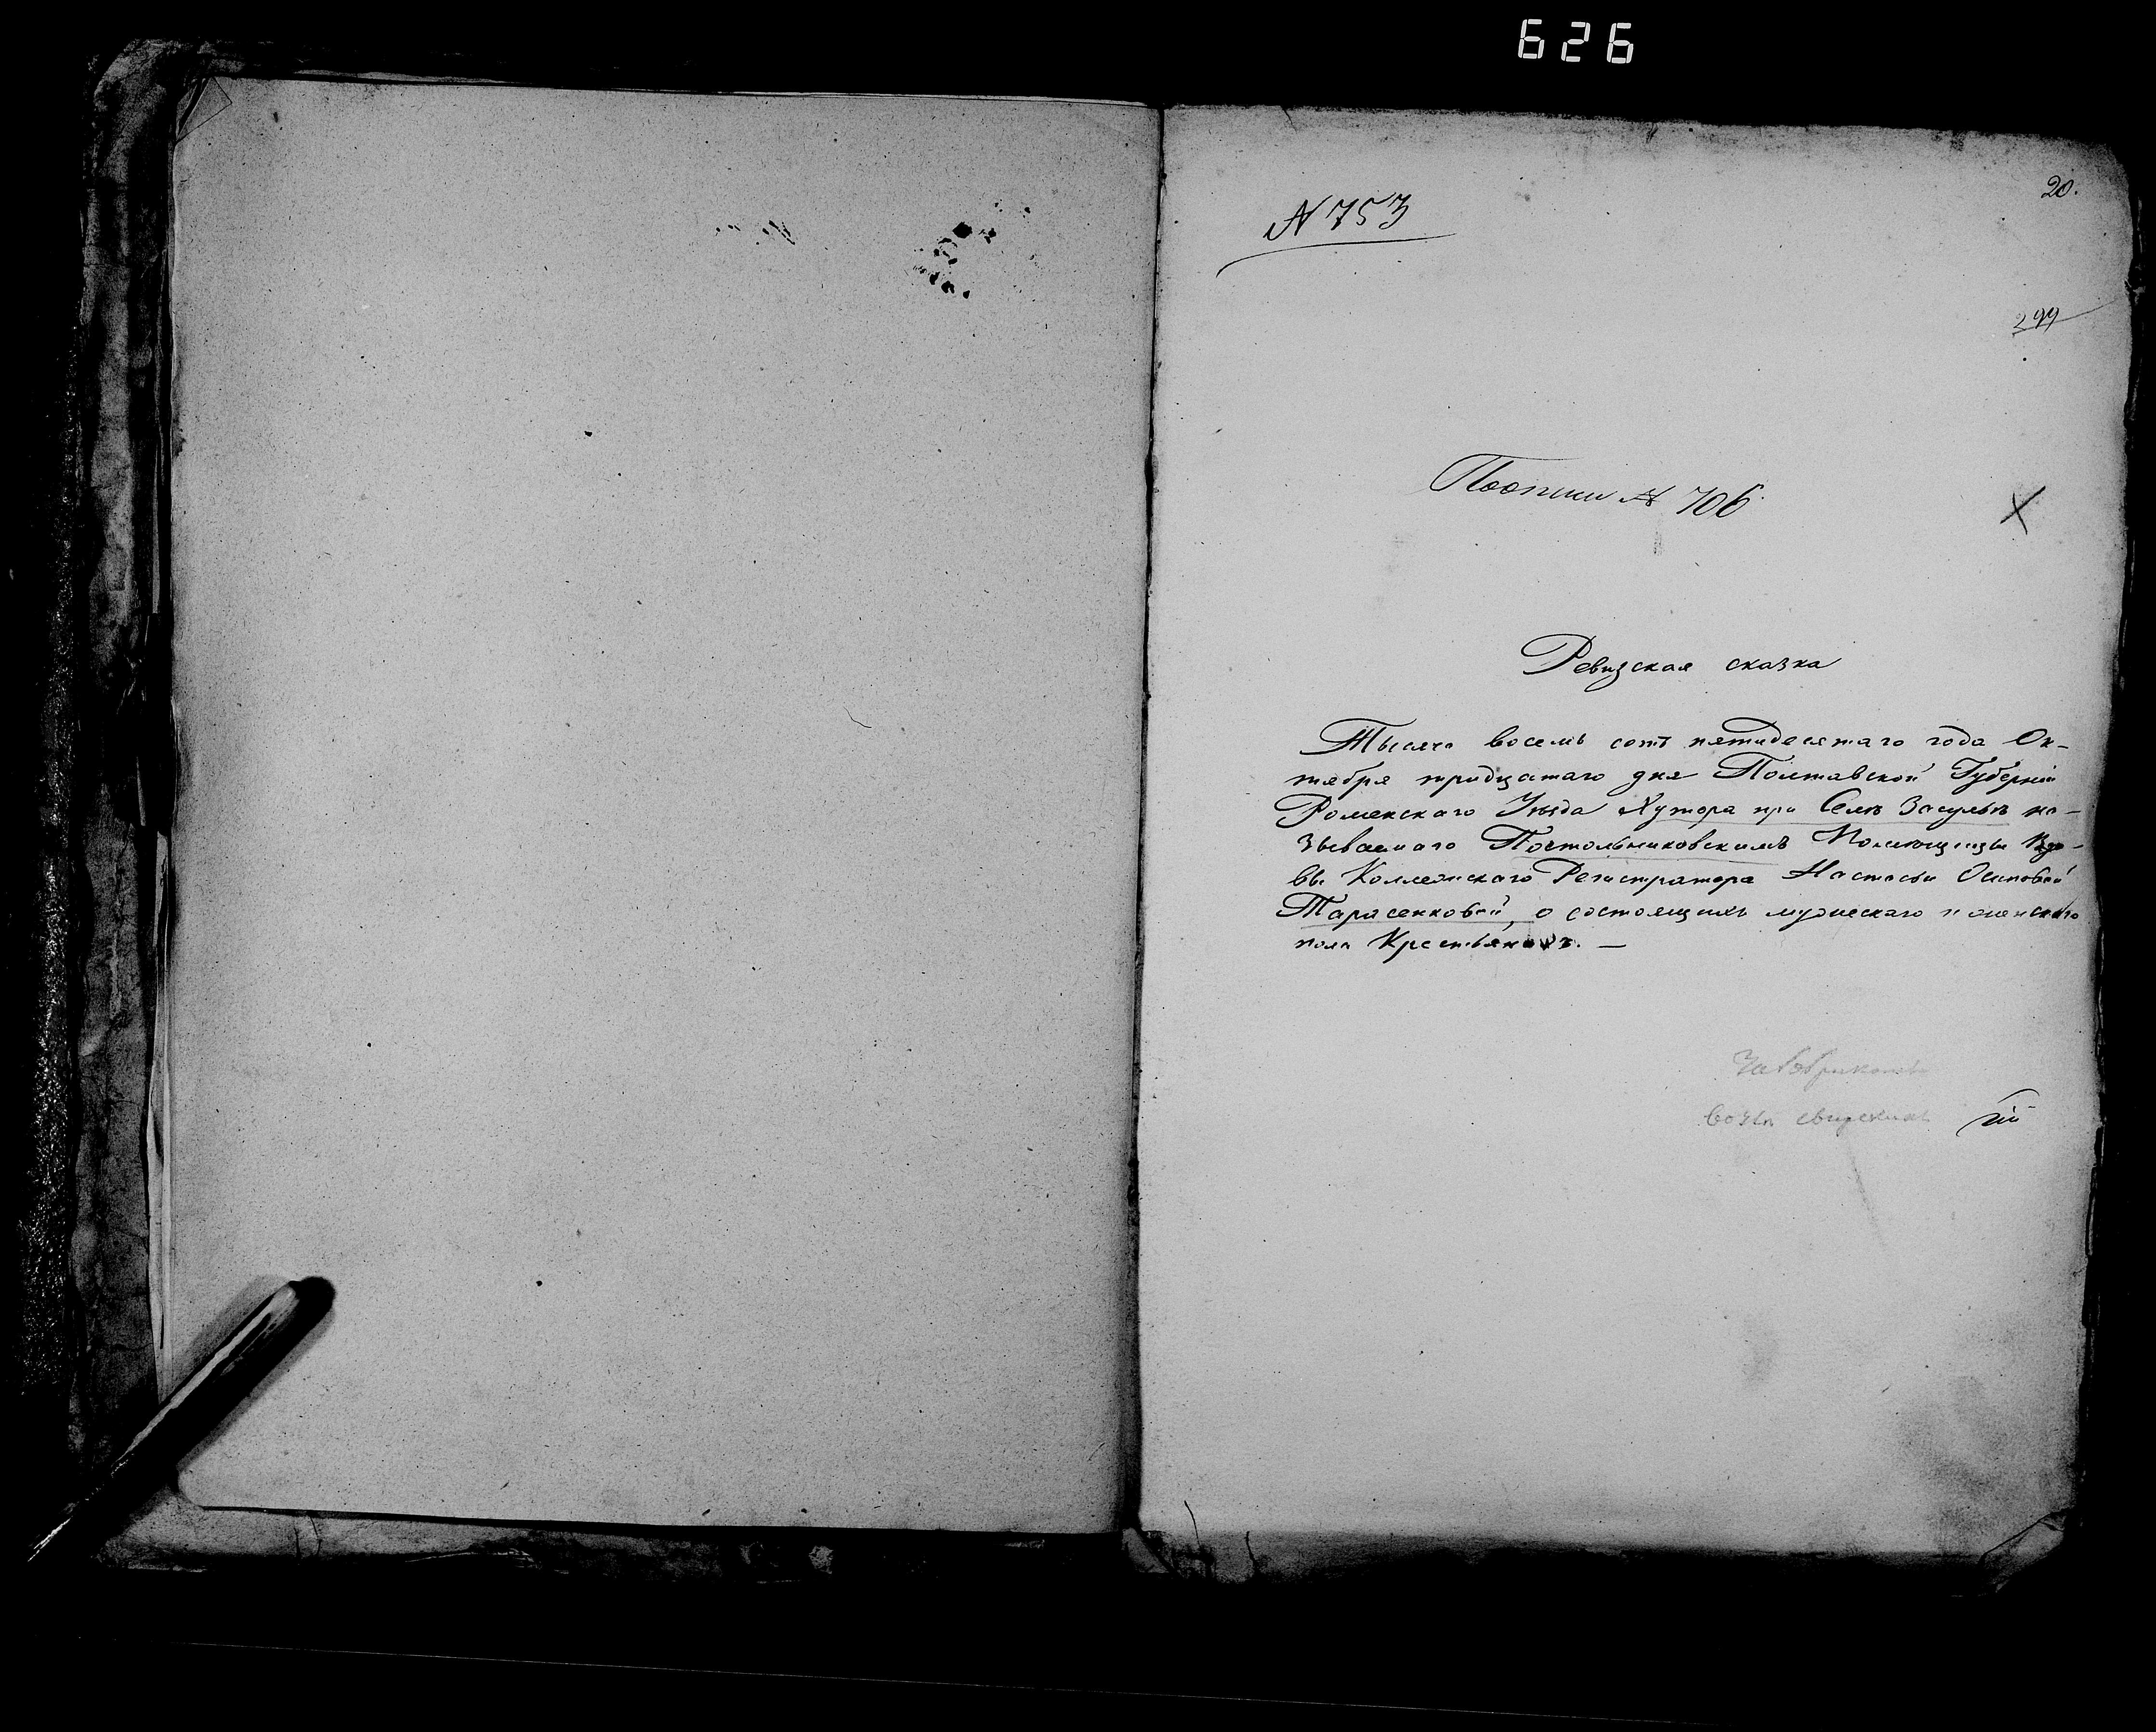 626
20.
N 753
299
По описи N 706
Ревизская сказка
Тысяча восемь сотъ пятидесятаго года Ок-
тября тридцатаго дня Полтавской Губерніи
Роменскаго Уѣзда Хутора при Селѣ Засульѣ на-
зываемаго Постольниковскимъ Помѣщицы Вдо-
вы Коллежскаго Регистратора Настасьи Осиповой
Тарасенковой, о состоящихъ мужескаго и женскаго
пола Крестьянахъ. —